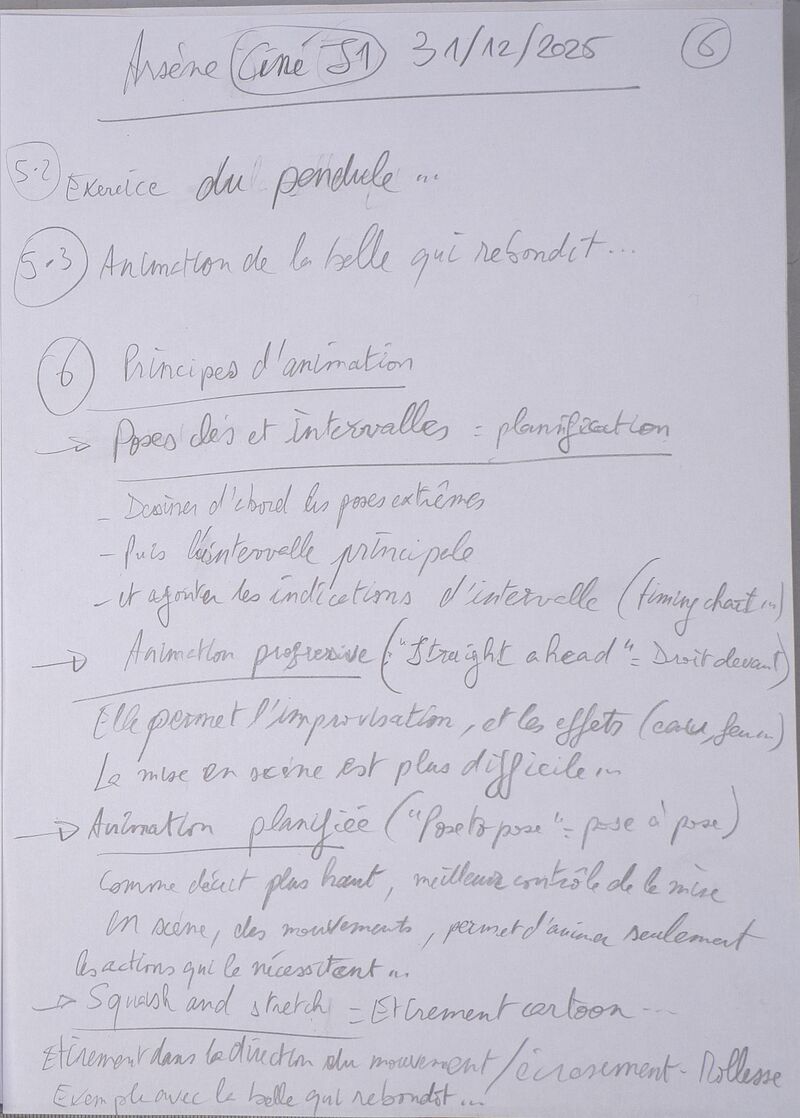 Arsène Ciné S1 31/12/2025 6
5.2 Exercice du pendule ...
5.3 Animation de la balle qui rebondit...
6 Principes d'animation
→ Poses clés et intervalles = planification
- Dessiner d'abord les poses extrêmes
- Puis l'intervalle principale
- et ajouter les indications d'intervalle (timing chart...)
→ Animation progressive (: "Straight ahead" = Droit devant)
Elle permet l'improvisation, et les effets (eau, feu...)
La mise en scène est plus difficile...
→ Animation planifiée ("Pose to pose" = pose à pose)
Comme décrit plus haut, meilleur contrôle de la mise
en scène, des mouvements, permet d'animer seulement
les actions qui le nécessitent...
→ Squash and stretch = Etirement cartoon ...
Etirement dans la direction du mouvement / écrasement - Mollesse
Exemple avec la balle qui rebondit...